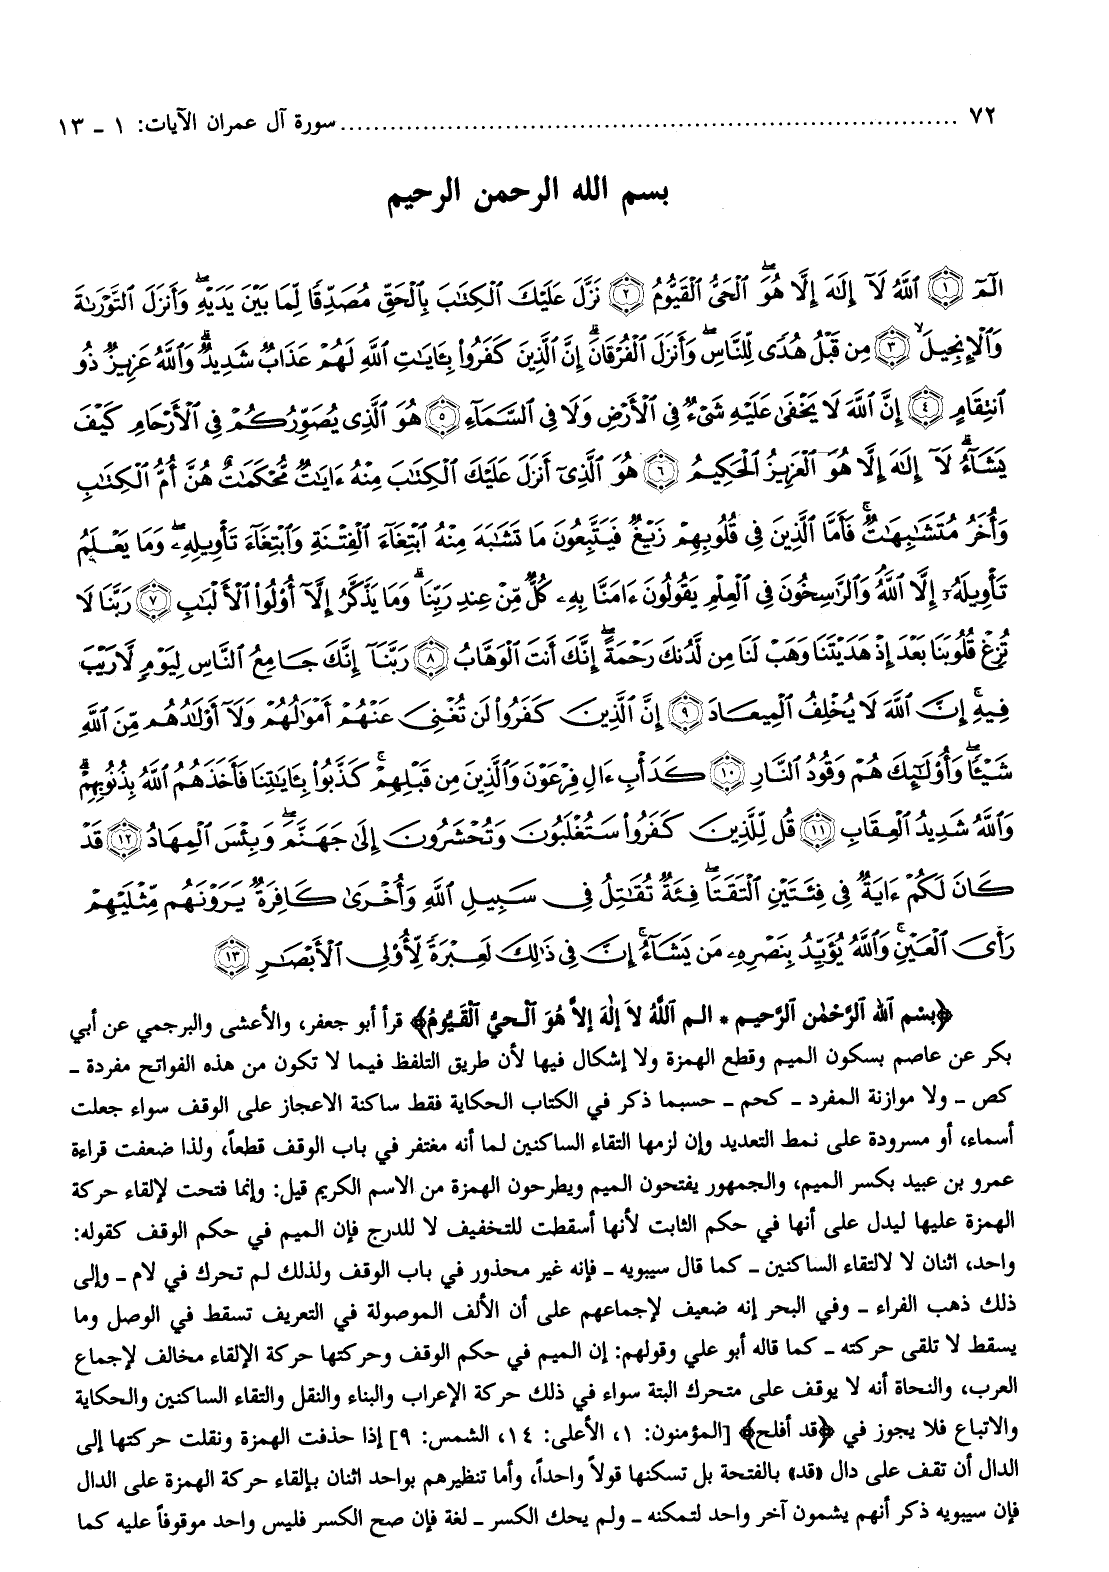 ٧٢ ........................................................................... سورة آل عمران الآيات: ١ ـ ١٣
بسم الله الرحمن الرحيم
الٓمٓ ١ ٱللَّهُ لَآ إِلَٰهَ إِلَّا هُوَ ٱلْحَىُّ ٱلْقَيُّومُ ٢ نَزَّلَ عَلَيْكَ ٱلْكِتَٰبَ بِٱلْحَقِّ مُصَدِّقًا لِّمَا بَيْنَ يَدَيْهِ وَأَنزَلَ ٱلتَّوْرَىٰةَ
وَٱلْإِنجِيلَ ٣ مِن قَبْلُ هُدًى لِّلنَّاسِ وَأَنزَلَ ٱلْفُرْقَانَ إِنَّ ٱلَّذِينَ كَفَرُوا۟ بِـَٔايَٰتِ ٱللَّهِ لَهُمْ عَذَابٌ شَدِيدٌ وَٱللَّهُ عَزِيزٌ ذُو
ٱنتِقَامٍ ٤ إِنَّ ٱللَّهَ لَا يَخْفَىٰ عَلَيْهِ شَىْءٌ فِى ٱلْأَرْضِ وَلَا فِى ٱلسَّمَآءِ ٥ هُوَ ٱلَّذِى يُصَوِّرُكُمْ فِى ٱلْأَرْحَامِ كَيْفَ
يَشَآءُ لَآ إِلَٰهَ إِلَّا هُوَ ٱلْعَزِيزُ ٱلْحَكِيمُ ٦ هُوَ ٱلَّذِىٓ أَنزَلَ عَلَيْكَ ٱلْكِتَٰبَ مِنْهُ ءَايَٰتٌ مُّحْكَمَٰتٌ هُنَّ أُمُّ ٱلْكِتَٰبِ
وَأُخَرُ مُتَشَٰبِهَٰتٌ فَأَمَّا ٱلَّذِينَ فِى قُلُوبِهِمْ زَيْغٌ فَيَتَّبِعُونَ مَا تَشَٰبَهَ مِنْهُ ٱبْتِغَآءَ ٱلْفِتْنَةِ وَٱبْتِغَآءَ تَأْوِيلِهِۦ وَمَا يَعْلَمُ
تَأْوِيلَهُۥٓ إِلَّا ٱللَّهُ وَٱلرَّٰسِخُونَ فِى ٱلْعِلْمِ يَقُولُونَ ءَامَنَّا بِهِۦ كُلٌّ مِّنْ عِندِ رَبِّنَا وَمَا يَذَّكَّرُ إِلَّآ أُو۟لُوا۟ ٱلْأَلْبَٰبِ ٧ رَبَّنَا لَا
تُزِغْ قُلُوبَنَا بَعْدَ إِذْ هَدَيْتَنَا وَهَبْ لَنَا مِن لَّدُنكَ رَحْمَةً إِنَّكَ أَنتَ ٱلْوَهَّابُ ٨ رَبَّنَآ إِنَّكَ جَامِعُ ٱلنَّاسِ لِيَوْمٍ لَّا رَيْبَ
فِيهِ إِنَّ ٱللَّهَ لَا يُخْلِفُ ٱلْمِيعَادَ ٩ إِنَّ ٱلَّذِينَ كَفَرُوا۟ لَن تُغْنِىَ عَنْهُمْ أَمْوَٰلُهُمْ وَلَآ أَوْلَٰدُهُم مِّنَ ٱللَّهِ
شَيْـًٔا وَأُو۟لَٰٓئِكَ هُمْ وَقُودُ ٱلنَّارِ ١٠ كَدَأْبِ ءَالِ فِرْعَوْنَ وَٱلَّذِينَ مِن قَبْلِهِمْ كَذَّبُوا۟ بِـَٔايَٰتِنَا فَأَخَذَهُمُ ٱللَّهُ بِذُنُوبِهِمْ
وَٱللَّهُ شَدِيدُ ٱلْعِقَابِ ١١ قُل لِّلَّذِينَ كَفَرُوا۟ سَتُغْلَبُونَ وَتُحْشَرُونَ إِلَىٰ جَهَنَّمَ وَبِئْسَ ٱلْمِهَادُ ١٢ قَدْ
كَانَ لَكُمْ ءَايَةٌ فِى فِئَتَيْنِ ٱلْتَقَتَا فِئَةٌ تُقَٰتِلُ فِى سَبِيلِ ٱللَّهِ وَأُخْرَىٰ كَافِرَةٌ يَرَوْنَهُم مِّثْلَيْهِمْ
رَأْىَ ٱلْعَيْنِ وَٱللَّهُ يُؤَيِّدُ بِنَصْرِهِۦ مَن يَشَآءُ إِنَّ فِى ذَٰلِكَ لَعِبْرَةً لِّأُو۟لِى ٱلْأَبْصَٰرِ ١٣
﴿بِسْمِ ٱللهِ ٱلرَّحْمٰنِ ٱلرَّحِيمِ * الم ٱللَّهُ لاَ إِلٰهَ إِلاَّ هُوَ ٱلْحَيُّ ٱلْقَيُّومُ﴾ قرأ أبو جعفر، والأعشى والبرجمي عن أبي
بكر عن عاصم بسكون الميم وقطع الهمزة ولا إشكال فيها لأن طريق التلفظ فيما لا تكون من هذه الفواتح مفردة ـ
كص ـ ولا موازنة المفرد ـ كحم ـ حسبما ذكر في الكتاب الحكاية فقط ساكنة الاعجاز على الوقف سواء جعلت
أسماء، أو مسرودة على نمط التعديد وإن لزمها التقاء الساكنين لما أنه مغتفر في باب الوقف قطعاً، ولذا ضعفت قراءة
عمرو بن عبيد بكسر الميم، والجمهور يفتحون الميم ويطرحون الهمزة من الاسم الكريم قيل: وإنما فتحت لإلقاء حركة
الهمزة عليها ليدل على أنها في حكم الثابت لأنها أسقطت للتخفيف لا للدرج فإن الميم في حكم الوقف كقوله:
واحد، اثنان لا لالتقاء الساكنين ـ كما قال سيبويه ـ فإنه غير محذور في باب الوقف ولذلك لم تحرك في لام ـ وإلى
ذلك ذهب الفراء ـ وفي البحر إنه ضعيف لإجماعهم على أن الألف الموصولة في التعريف تسقط في الوصل وما
يسقط لا تلقى حركته ـ كما قاله أبو علي وقولهم: إن الميم في حكم الوقف وحركتها حركة الإلقاء مخالف لإجماع
العرب، والنحاة أنه لا يوقف على متحرك البتة سواء في ذلك حركة الإعراب والبناء والنقل والتقاء الساكنين والحكاية
والاتباع فلا يجوز في ﴿قد أفلح﴾ [المؤمنون: ١، الأعلى: ١٤، الشمس: ٩] إذا حذفت الهمزة ونقلت حركتها إلى
الدال أن تقف على دال «قد» بالفتحة بل تسكنها قولاً واحداً، وأما تنظيرهم بواحد اثنان بإلقاء حركة الهمزة على الدال
فإن سيبويه ذكر أنهم يشمون آخر واحد لتمكنه ـ ولم يحك الكسر ـ لغة فإن صح الكسر فليس واحد موقوفاً عليه كما